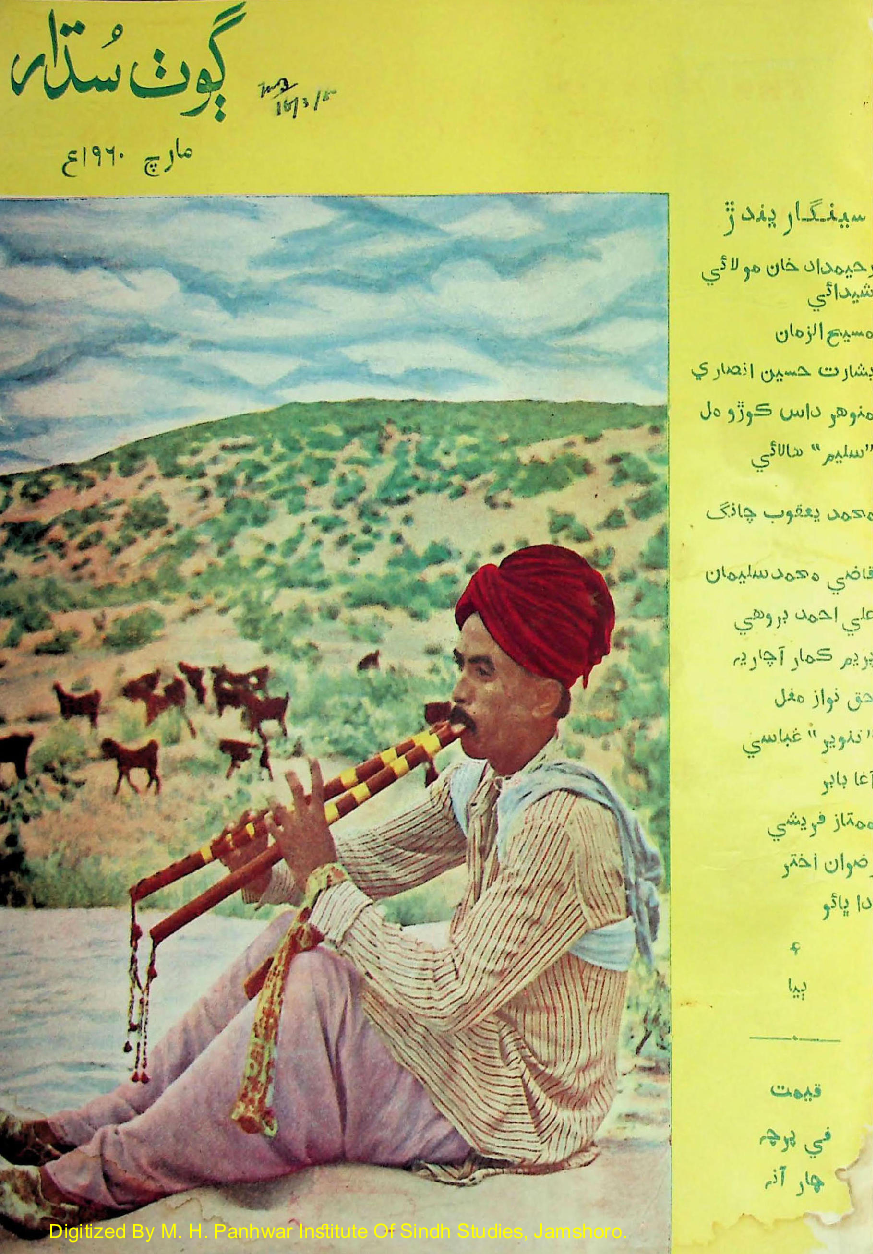 ڳوٺ سُڌار
مارچ ۱۹٦۰ع
سينگار پندڙ
رحيمداد خان مولائي
شيدائي
مسيح الزمان
بشارت حسين انصاري
منوهر داس ڪوڙو مل
”سليم“ هالائي
محمد يعقوب چانگ
قاضي محمد سليمان
علي احمد بروهي
پريم ڪمار آچاريه
حق نواز مغل
”تنوير“ عباسي
آغا بابر
ممتاز قريشي
رضوان اختر
ادا ڀائو
۽
ٻيا
قيمت
في پرچہ
چار آنہ
Digitized By M. H. Panhwar Institute Of Sindh Studies, Jamshoro.